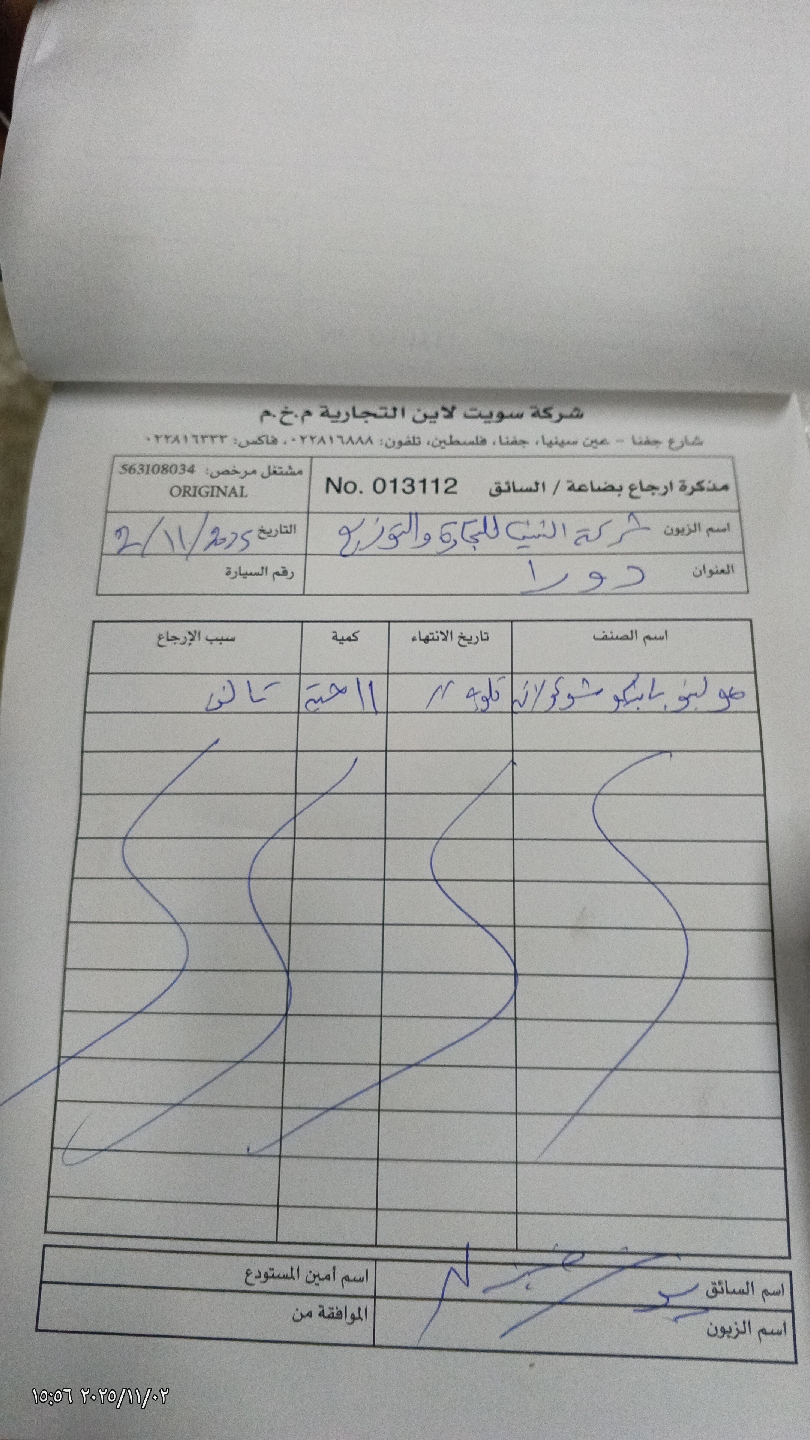 شركة سويت لاين التجارية م.خ.م
شارع جفنا - عين سينيا، جفنا، فلسطين، تلفون: ٠٢٢٨١٦٨٨٨، فاكس: ٠٢٢٨١٦٣٣٣
مذكرة ارجاع بضاعة / السائق No. 013112 مشتغل مرخص: 563108034
ORIGINAL
اسم الزبون شركة للتجارة والتوزيع التاريخ 2/11/2025
العنوان دورا رقم السيارة
اسم الصنف تاريخ الانتهاء كمية سبب الإرجاع
شوكولاته 11 حبة تالف
اسم السائق اسم أمين المستودع
اسم الزبون الموافقة من
٢٠٢٥/١١/٠٢ ١٥:٥٦